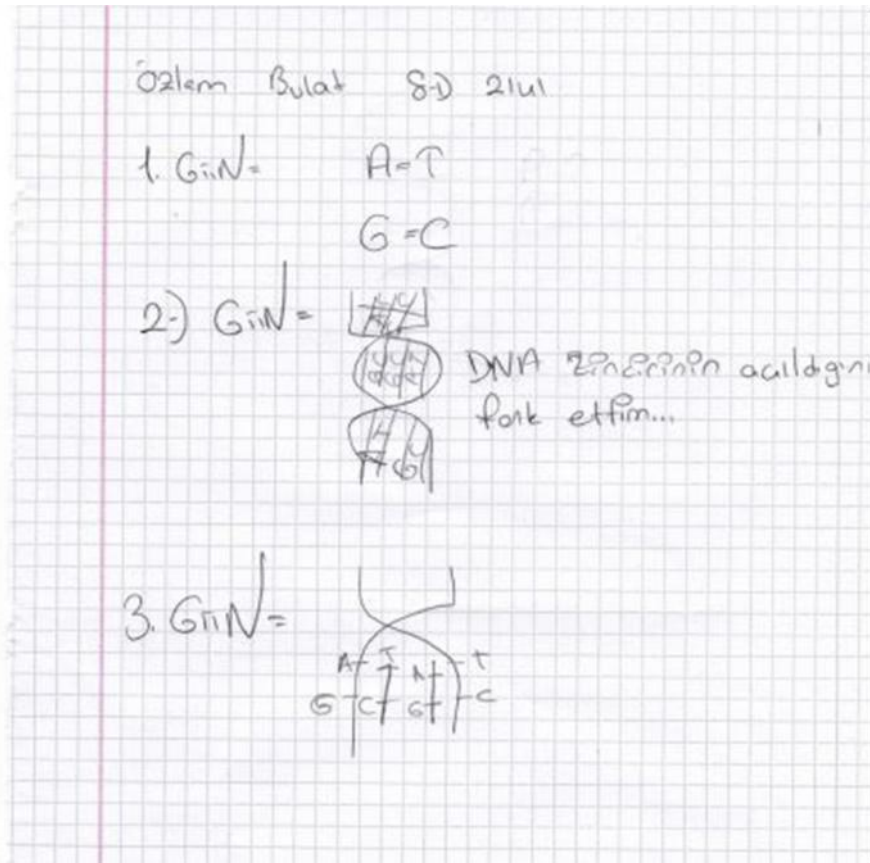 Özlem Bulat 8-D 2141
1. GüN= A=T
G=C
2-) GüN=
DNA zincirinin acıldıgnı
fark ettim...
3. GüN=
A T A T
G C G C